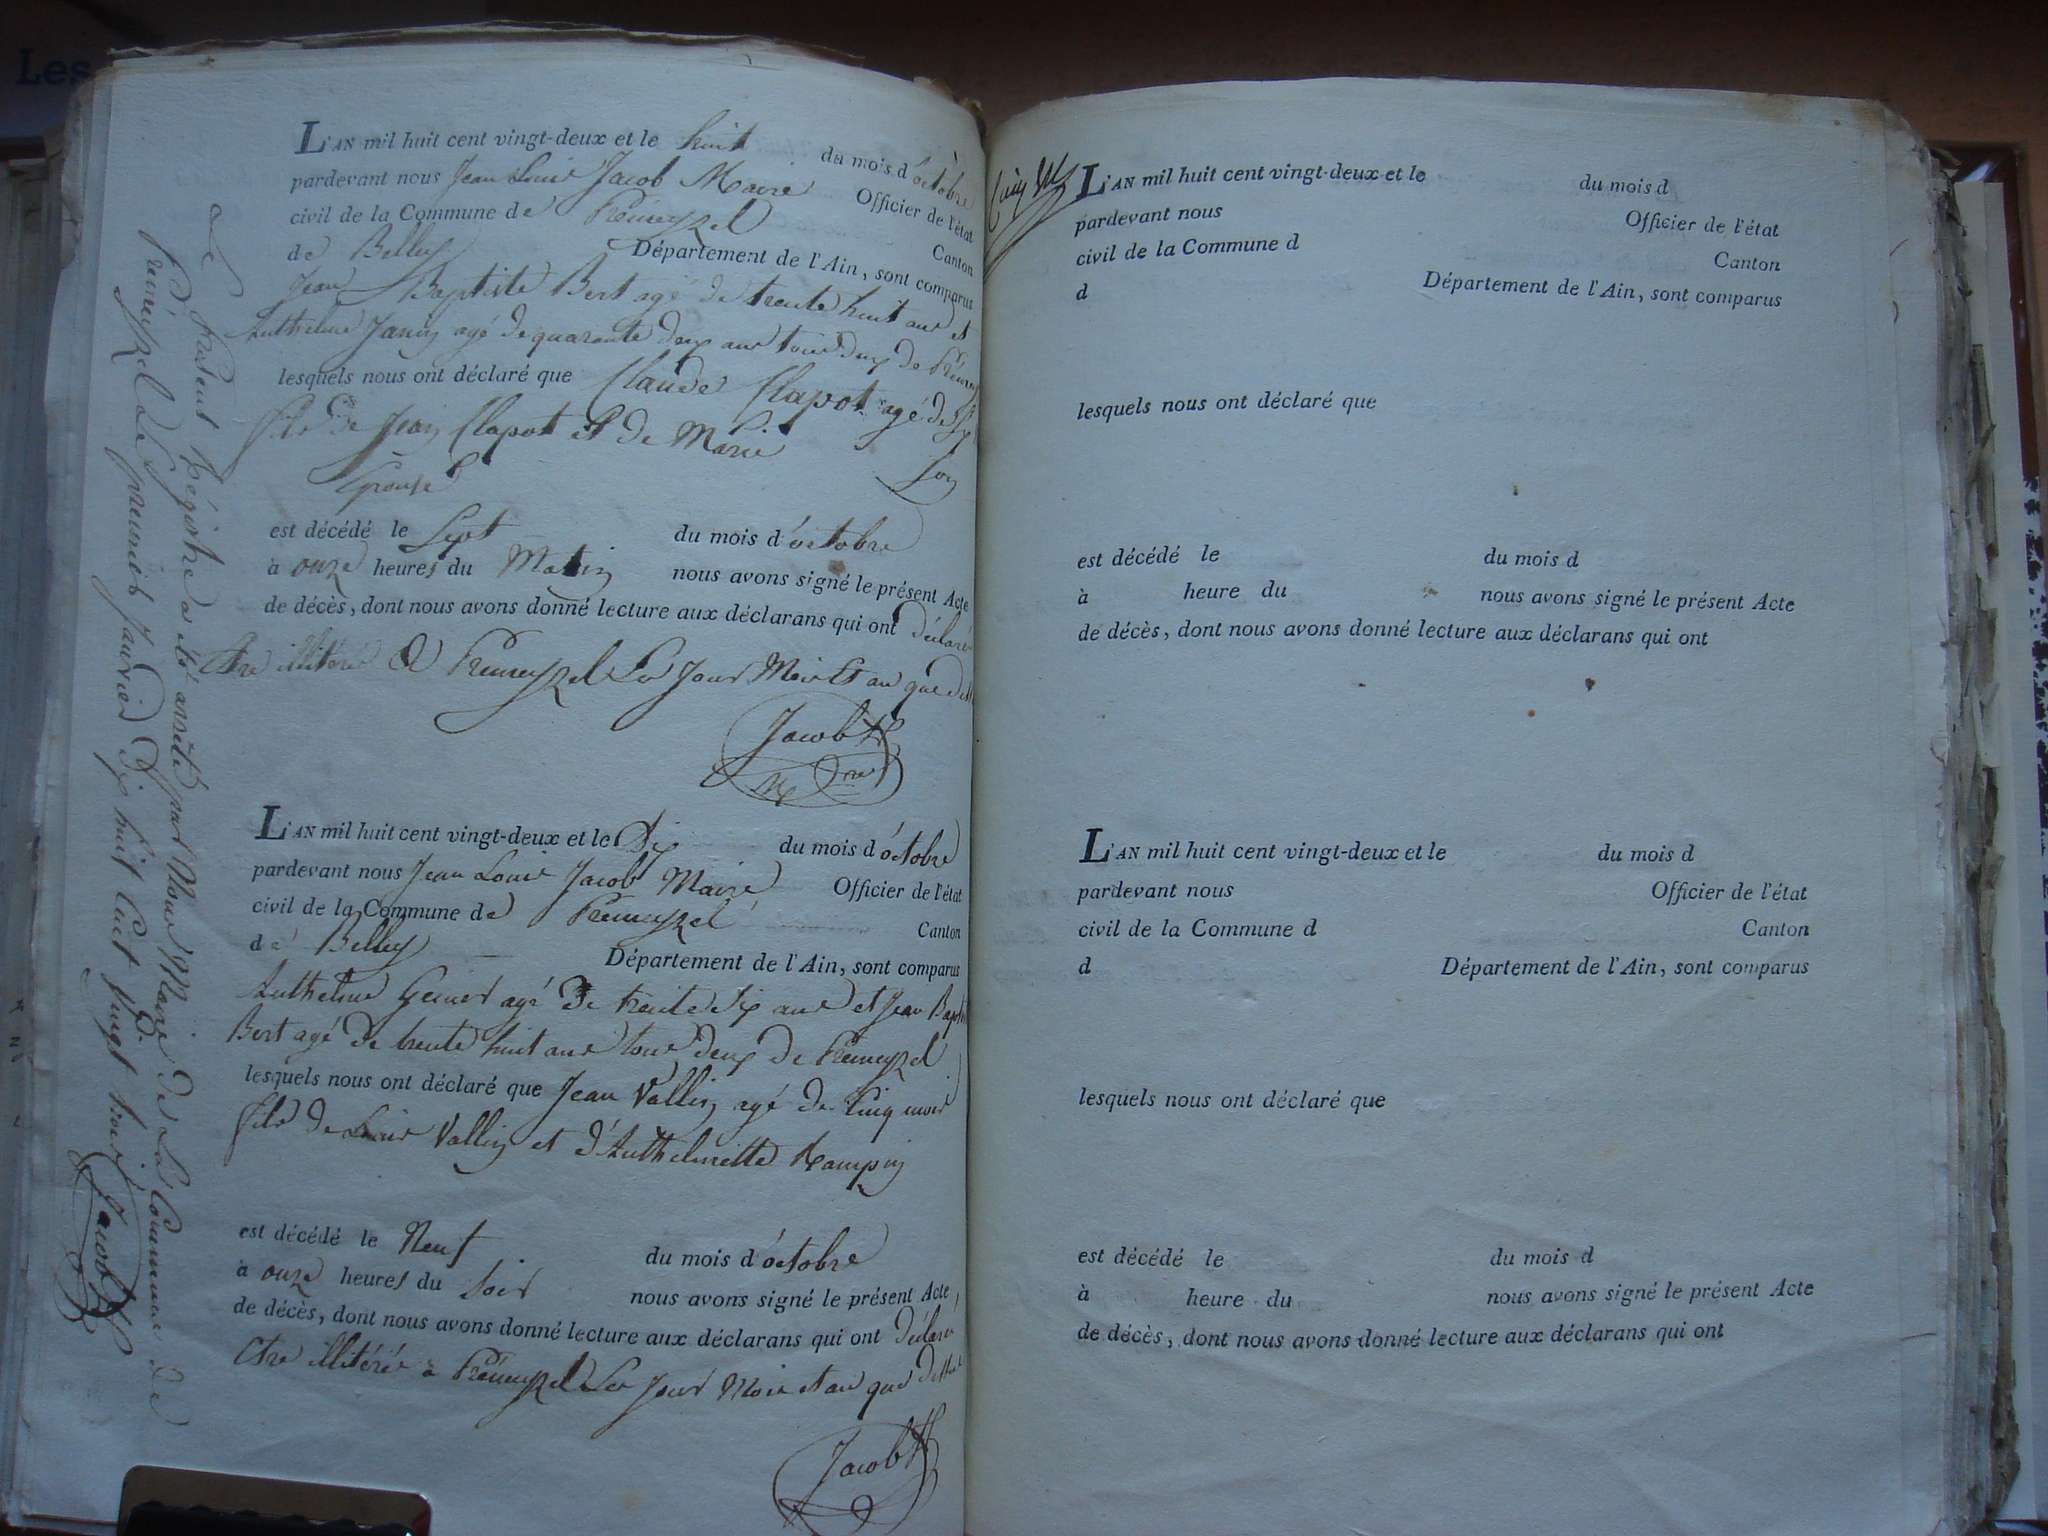 Les
L'AN mil huit cent vingt-deux et le huit du mois d'octobre
pardevant nous Jean Louis Jacob Maire Officier de l'état
civil de la Commune de Prémeyzel Canton
de Belley Département de l'Ain, sont comparus
Jean Baptiste Bert agé de trente huit ans et
Anthelme Janin agé de quarante deux ans tous deux de
lesquels nous ont déclaré que Claude Clapot agé de
fils de Jean Clapot et de Marie son
Epouse
est décédé le Sept du mois d'octobre
à onze heures du Matin nous avons signé le présent Acte
de décès, dont nous avons donné lecture aux déclarans qui ont déclaré
être illitérés à Prémeyzel Les Jour Mois et an que
Jacob
L'AN mil huit cent vingt-deux et le Dix du mois d'octobre
pardevant nous Jean Louis Jacob Maire Officier de l'état
civil de la Commune de Prémeyzel Canton
de Belley Département de l'Ain, sont comparus
Anthelme agé de trente six ans et Jean
Bert agé de trente huit ans tous deux de Prémeyzel
lesquels nous ont déclaré que Jean Vallin agé de Cinq mois
fils de Louis Vallin et d'Anthelmette Rampin
est décédé le Neuf du mois d'octobre
à onze heures du Soir nous avons signé le présent Acte
de décès, dont nous avons donné lecture aux déclarans qui ont déclaré
être illitérés à Prémeyzel Les Jour Mois et an que
Jacob
Le présent Régistre a été arrêté par Nous Maire de La Commune de
Prémeyzel Le premier Janvier Dix huit Cent vingt trois
Jacob
L'AN mil huit cent vingt-deux et le du mois d
pardevant nous Officier de l'état
civil de la Commune d Canton
d Département de l'Ain, sont comparus
lesquels nous ont déclaré que
est décédé le du mois d
à heure du nous avons signé le présent Acte
de décès, dont nous avons donné lecture aux déclarans qui ont
L'AN mil huit cent vingt-deux et le du mois d
pardevant nous Officier de l'état
civil de la Commune d Canton
d Département de l'Ain, sont comparus
lesquels nous ont déclaré que
est décédé le du mois d
à heure du nous avons signé le présent Acte
de décès, dont nous avons donné lecture aux déclarans qui ont